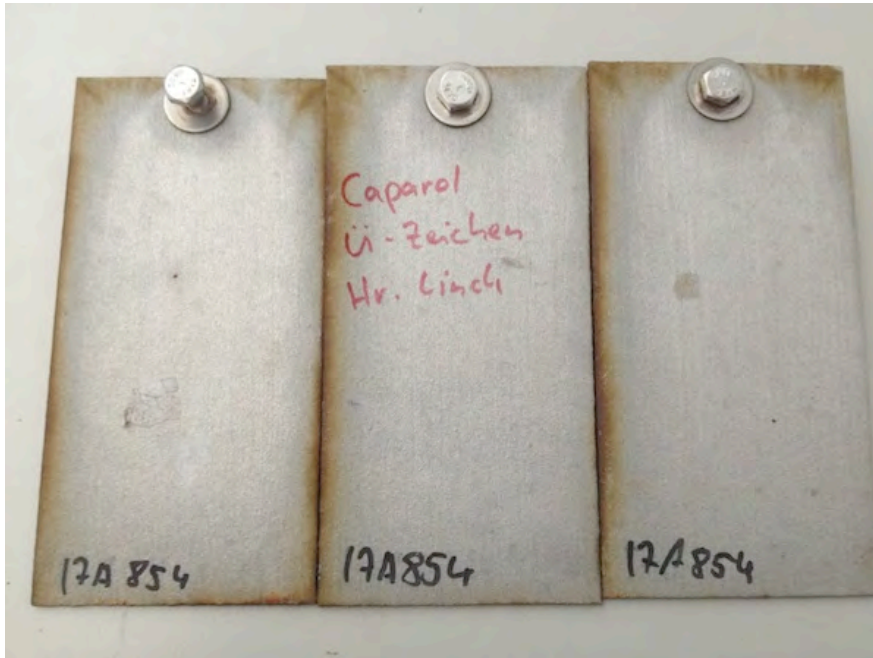 Caparol
Ü-Zeichen
Hr. Linck
17A854
17A854
17A854